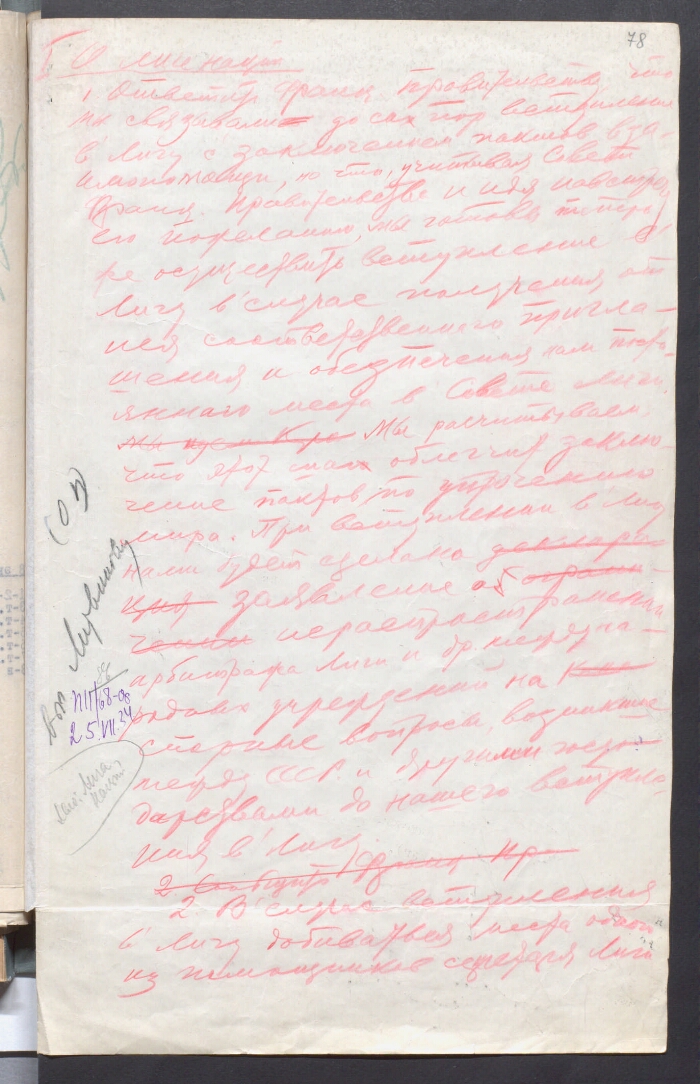 78
О лиги наций
1. Ответить Франц. Правительству, что
мы связывали до сих пор вступление
в Лигу с заключением пактов вза-
имопомощи, но что, учитывая Совети
Франц. Правительства и идя навстречу
его пожеланию, мы готовы теперь
же осуществить вступление в
Лигу в случае получения от
нея соответственного пригла-
шения и обезпечения нам посто-
янного места в Совете Лиги.
Мы расчитываем,
что этот шаг облегчит заклю-
чение пактов по упрочению
мира. При вступлении в Лигу
нами будет сделана деклара-
ция заявление об ограни-
чении нераспространении
арбитража Лиги и др. междуна-
родных учреждений на
спорные вопросы, возникшие
между СССР и другими госу-
дарствами до нашего вступле-
ния в Лигу
2. Сообщить Франц. Пра
2. В случае вступления
в Лигу добиваться места одного
из помощников секретаря Лиги
(ОП)
Литвинову
П11/68-оп
25.VII.34
Лига